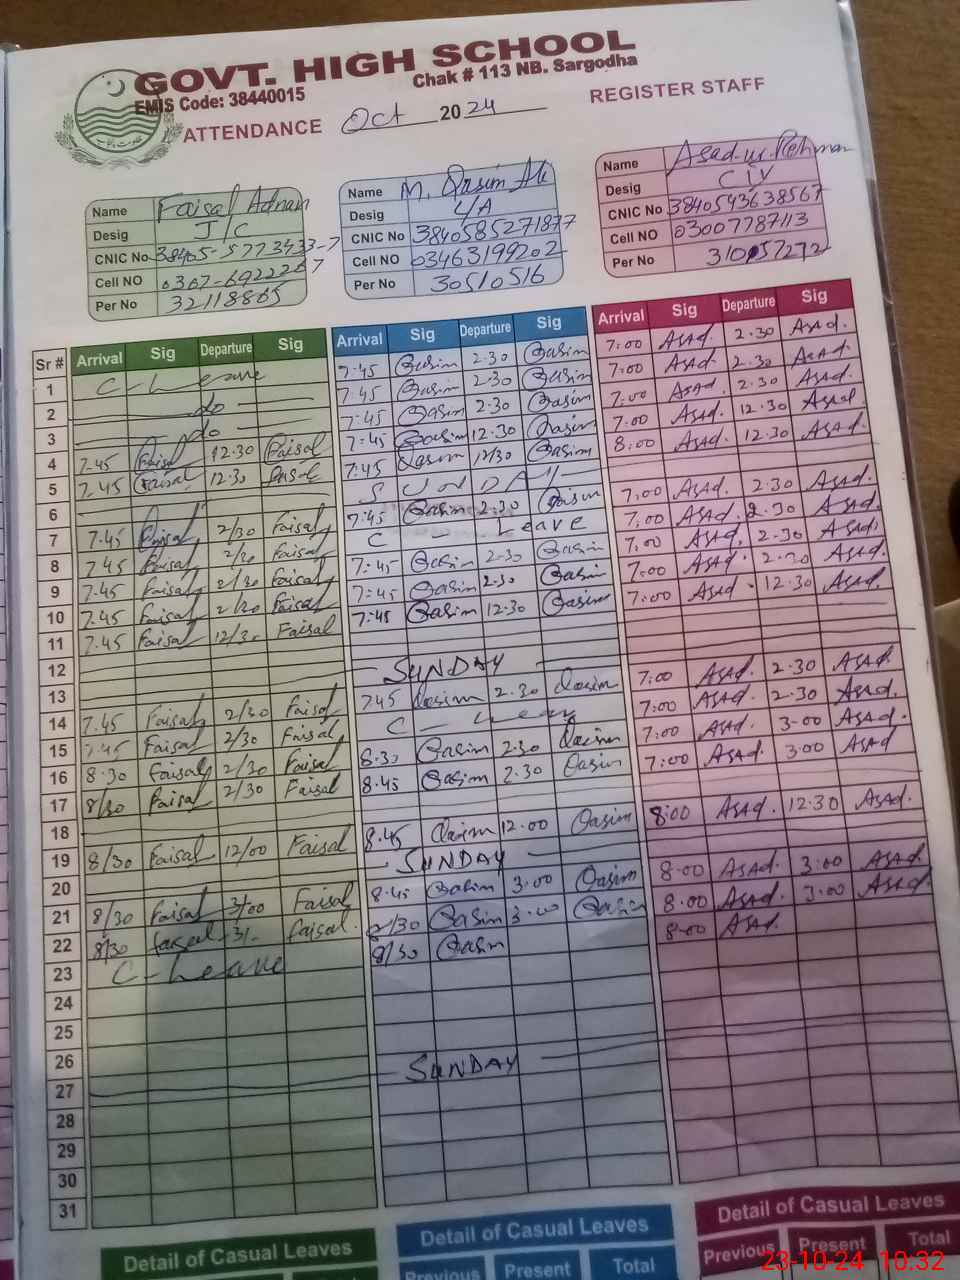 GOVT. HIGH SCHOOL
Chak # 113 NB. Sargodha
EMIS Code: 38440015
ATTENDANCE Oct 2024 REGISTER STAFF
Name Faisal Adnan
Desig J/C
CNIC No
Cell NO
Per No 32118865
Name M. Qasim Ali
Desig L/A
CNIC No 3840585271877
Cell NO 03463199202
Per No 30510516
Name Asad-ur-Rehman
Desig C IV
CNIC No 3840543638567
Cell NO 03007787113
Per No
Sr # Arrival Sig Departure Sig Arrival Sig Departure Sig Arrival Sig Departure Sig
1 C-Leave 7:45 Qasim 2.30 Qasim 7:00 Asad. 2.30 Asad.
2 do 7:45 Qasim 2.30 Qasim 7:00 Asad. 2.30 Asad.
3 do 7:45 Qasim 2.30 Qasim 7:00 Asad. 2.30 Asad.
4 7.45 Faisal 12.30 Faisal 7:45 Qasim 12.30 Qasim 7:00 Asad. 12.30 Asad.
5 7.45 Faisal 12.30 Faisal 7:45 Qasim 12/30 Qasim 8:00 Asad. 12.30 Asad.
6 SUNDAY
7 7.45 Faisal 2/30 Faisal 7:45 Qasim 2.30 Qasim 7:00 Asad. 2.30 Asad.
8 7.45 Faisal 2/30 Faisal C Leave 7:00 Asad. 2.30 Asad.
9 7.45 Faisal 2/30 Faisal 7:45 Qasim 2.30 Qasim 7:00 Asad. 2.30 Asad.
10 7.45 Faisal 2/30 Faisal 7:45 Qasim 2.30 Qasim 7:00 Asad. 2.30 Asad.
11 7.45 Faisal 12/30 Faisal 7:45 Qasim 12.30 Qasim 7:00 Asad. 12.30 Asad.
12
13 SUNDAY
14 7.45 Faisal 2/30 Faisal 7.45 Qasim 2.30 Qasim 7:00 Asad. 2.30 Asad.
15 7.45 Faisal 2/30 Faisal C-Leave 7:00 Asad. 2.30 Asad.
16 8.30 Faisal 2/30 Faisal 8.30 Qasim 2.30 Qasim 7:00 Asad. 3.00 Asad.
17 8/30 Faisal 2/30 Faisal 8.45 Qasim 2.30 Qasim 7:00 Asad. 3.00 Asad
18
19 8/30 Faisal 12/00 Faisal 8.45 Qasim 12.00 Qasim 8:00 Asad. 12.30 Asad.
20 SUNDAY
21 8/30 Faisal 3/00 Faisal 8.45 Qasim 3.00 Qasim 8.00 Asad. 3.00 Asad.
22 8/30 Faisal 3/- Faisal. 8/30 Qasim 3.00 Qasim 8.00 Asad. 3.00 Asad.
23 C-Leave 8/30 Qasim 8.00 Asad.
24
25
26
27 SUNDAY
28
29
30
31
Detail of Casual Leaves Detail of Casual Leaves Detail of Casual Leaves
Previous Present Total Previous Present Total
23-10-24 10:32